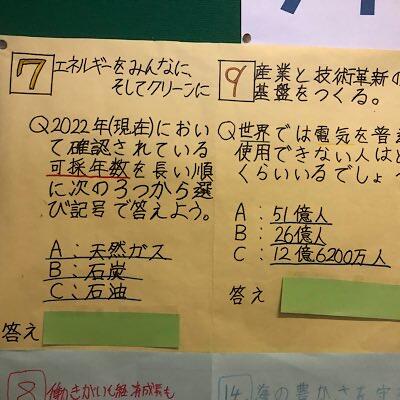 7 エネルギーをみんなに、
そしてクリーンに
Q2022年(現在)におい
て確認されている
可採年数を長い順
に次の3つから選
び記号で答えよう。
A:天然ガス
B:石炭
C:石油
答え
9 産業と技術革新の
基盤をつくる。
Q世界では電気を普
使用できない人は
くらいいるでしょ
A:51億人
B:26億人
C:12億6200万人
答え
8 働きがいも経済成長も
14 海の豊かさを守